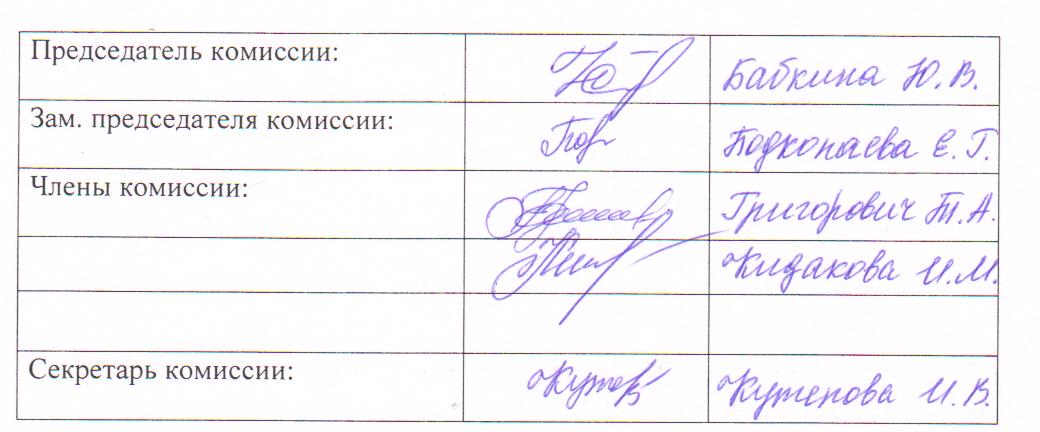 Председатель комиссии: Бабкина Ю. В.
Зам. председателя комиссии: Подкопаева Е. Г.
Члены комиссии: Григорович Т. А.
Кидакова И. М.
Секретарь комиссии: Кутепова И. В.